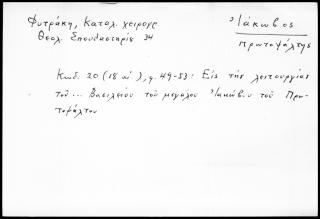 Φυτράκη, Καταλ. χειρογρ.
Θεολ. Σπουδαστηρίς 34
Ἰάκωβος
πρωτοψάλτης
Κωδ. 20 (18 αἰ), φ. 49-53: Εἰς τὴν λειτουργίαν
τοῦ... Βασιλείου τοῦ μεγάλου Ἰακώβου τοῦ Πρω-
τοψάλτου